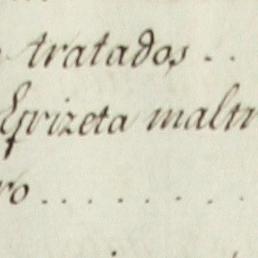 tratados . .
Grizeta maltr
ro . . . . . . . .